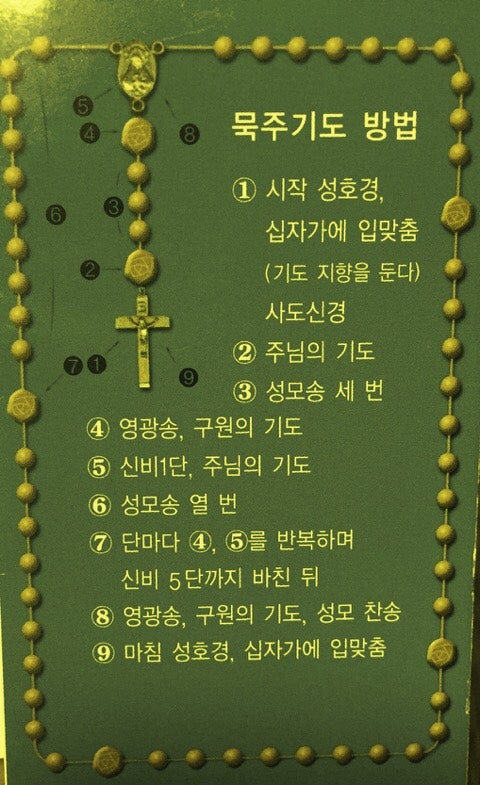 묵주기도 방법
① 시작 성호경,
십자가에 입맞춤
(기도 지향을 둔다)
사도신경
② 주님의 기도
③ 성모송 세 번
④ 영광송, 구원의 기도
⑤ 신비1단, 주님의 기도
⑥ 성모송 열 번
⑦ 단마다 ④, ⑤를 반복하며
신비 5단까지 바친 뒤
⑧ 영광송, 구원의 기도, 성모 찬송
⑨ 마침 성호경, 십자가에 입맞춤
❺
❹ ❽
❻ ❸
❷
❼ ❶ ❾